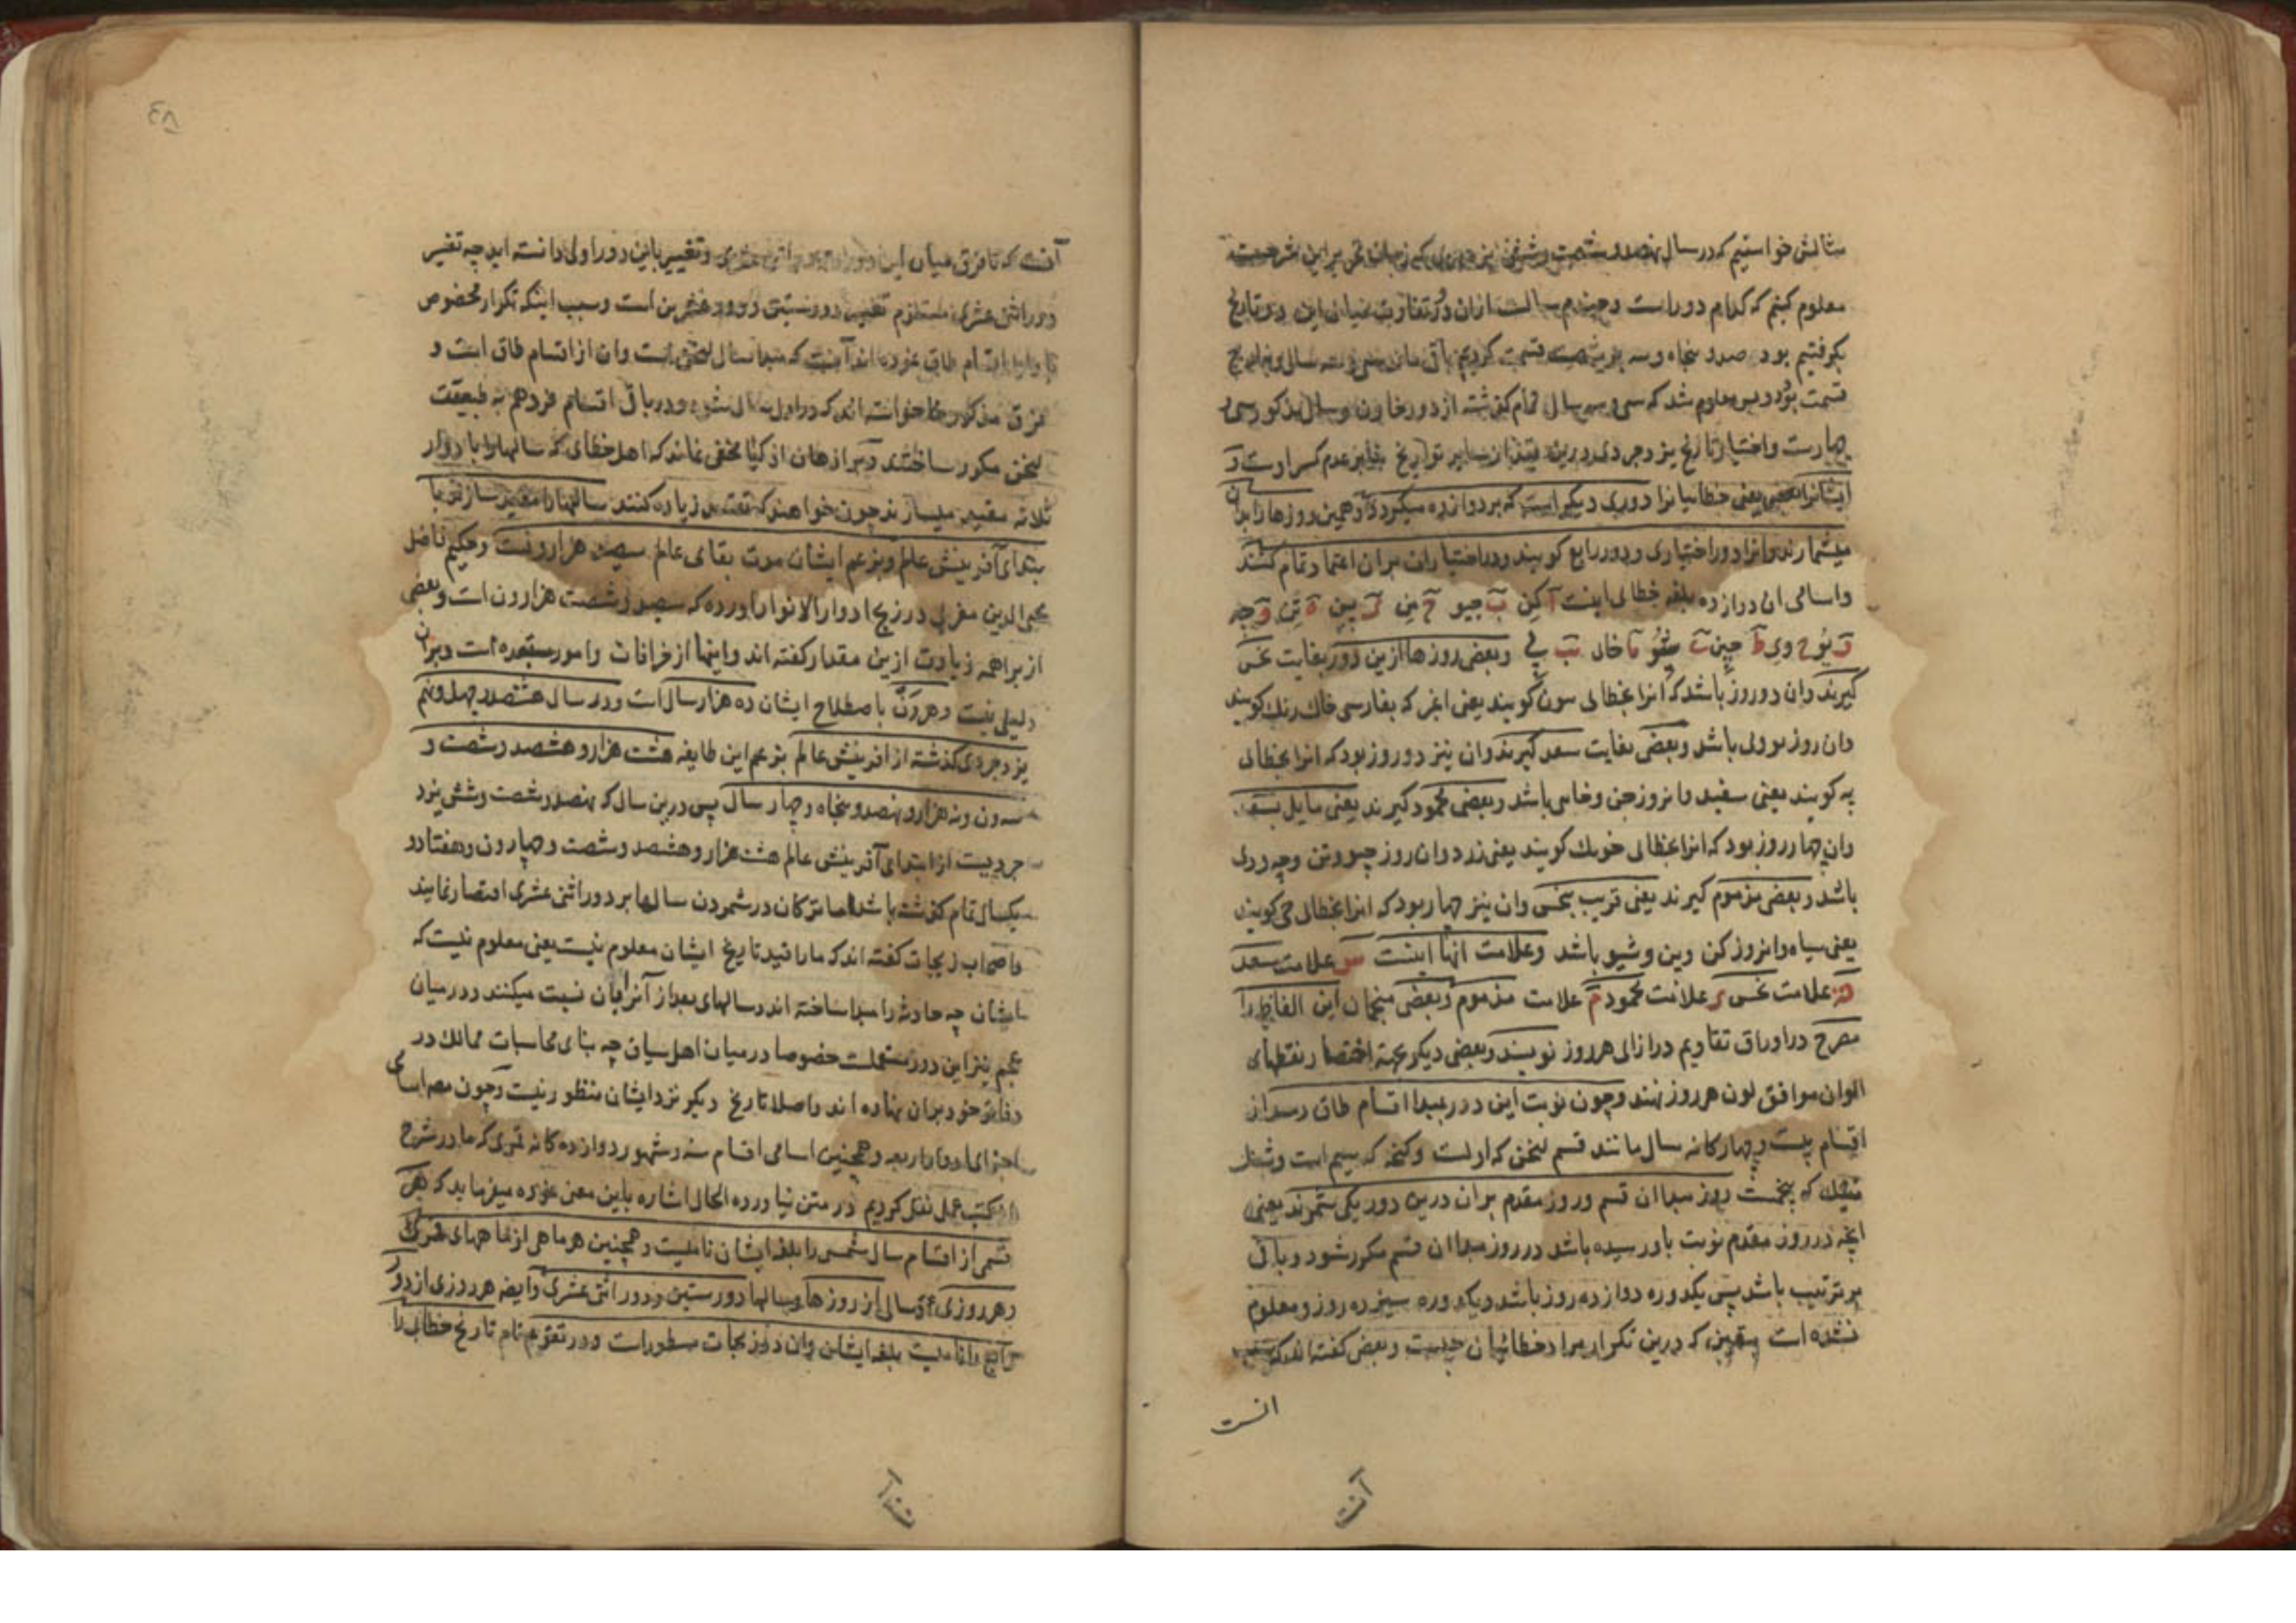 مثالش خواستیم که در سال نهصد و شصت و شش یزدجردی که زمان تحریر این شرحست
معلوم کنیم که کدام دور است و چندم سالست ازان دور تفاوت میان این و تاریخ
بگرفتیم بود صد و پنجاه و سه بر شصت قسمت کردیم باقی ماند سی و سه سال
قسمت بود و پس معلوم شد که سی و سه سال تمام گذشته از دور خاون و سال مذکور سی و
چهارست و اختیار تاریخ یزدجردی درین قید از سایر تواریخ بنابر عدم کسر اوست و
ایشانرا یعنی خطائیانرا دوری دیگر است که بر دوازده میگردد و همین روزها را بدان
میشمارند و انرا دور اختیاری و دور رابع گویند و در اختیارات بران اعتماد تمام کنند
و اسامی ان دوازده بلغه خطائی اینست آ کن ب جیو ج من د پین ه تن و چه
ز پو ح وی ط چین ی شیو یا خای یب پی و بعضی روزها ازین دور بغایت نحس
گیرند وان دو روز باشد که انرا بخطائی سون گویند یعنی اغبر که بفارسی خاک رنک گویند
وان روز بو ولی باشد و بعضی بغایت سعد گیرند وان نیز دو روز بود که انرا بخطائی
په گویند یعنی سفید وانروز جن و خای باشد و بعضی محمود گیرند یعنی مایل بسعد
وان چهار روز بود که انرا بخطائی خونک گویند یعنی زرد وان روز جیو و تن و چه و وی
باشد و بعضی مذموم گیرند یعنی قریب بنحس وان نیز چهار بود که انرا بخطائی خی گویند
یعنی سیاه وانروز کن و پن و شیو باشد و علامت انها اینست س علامت سعد
علامت نحس ر علامت محمود م علامت مذموم و بعضی منجمان این الفاظ را
مصرح در اوراق تقاویم در ازای هر روز نویسند و بعضی دیگر بجهة اختصار نقطهای
الوان موافق لون هر روز نهند و چون نوبت این دور بمبدا اقسام طاق رسد از
اقسام بیست و چهارگانه سال مانند قسم لیخن که اولست و کنجه که سیم است و مثل
که نخست روز مبدا ان قسم و روز مقدم بر ان درین دور یکی شمرند یعنی
انچه در روز مقدم نوبت باو رسیده باشد در روز مبدا ان قسم مکرر شود و باقی
بر ترتیب باشد پس یکدوره دوازده روز باشد و یکدوره سیزده روز و معلوم
نشده است بیقین که درین تکرار مراد خطائیان چیست و بعضی گفته اند که
انست
آنست
آنست که تا فرق میان این دور و دور اثنی عشری و تغییر باین دور اولی دانسته اند چه تغییر
دور اثنی عشری مستلزم تغییر دور ستینی و دور عشرین است و سبب اینکه تکرار مخصوص
باوایل اقسام طاق نموده اند آنست که مبدا سال لیخن است وان از اقسام طاق است و
فرق مذکور خواسته اند که در اول سال شود و در باقی اقسام فرد هم به طبیعت
لیخن مکرر ساختند و مخفی نماند که اهل خطای که سالها را با دوار
ثلاثه مقید میسازند چون خواهند که تعیین زیاده کنند سالها را مقید سازند با
بتدای آفرینش عالم و بزعم ایشان مدت بقای عالم سیصد هزار ون است و حکیم فاضل
محیی الدین مغربی در زیج ادوار الانوار اورده که سیصد و شصت هزار ون است و بعضی
از براهمه زیادت ازین مقدار گفته اند و اینها از خرافات و امور مستبعده است و بران
دلیلی نیست و هر ون باصطلاح ایشان ده هزار سال است و در سال هشتصد و چهل و نهم
یزدجردی گذشته از آفرینش عالم بزعم این طایفه هشت هزار و هشتصد و شصت و
سه ون و نه هزار و نهصد و پنجاه و چهار سال پس درین سال که نهصد و شصت و شش یزد
جردیست از ابتدای آفرینش عالم هشت هزار و هشتصد و شصت و چهار ون و هفتاد و
یکسال تمام گذشته باشد اما ترکان در شمردن سالها بر دور اثنی عشری اقتصار نمایند
و اصحاب زیجات گفته اند که مارا قید تاریخ ایشان معلوم نیست یعنی معلوم نیست که
ایشان چه حادثه را مبدا ساخته اند و سالهای بعد از آنرا بان نسبت میکنند و در میان
عجم نیز این دور مستعملست خصوصا در میان اهل سیاق چه بنای محاسبات ممالک در
دفاتر خود بران نهاده اند و اصلا تاریخ دیگر نزد ایشان منظور نیست و چون مص اسامی
اجزای ادوار اربعه و همچنین اسامی اقسام سنه و شهور دوازده گانه قمری که ما در شرح
از کتب عمل نقل کردیم در متن نیاورده الحال اشاره باین معنی نموده میفرماید که هر
قسمی از اقسام سال شمسی را بلغه ایشان نامیست و همچنین هر ماهی از ماههای قمری
و هر روزی و سالی از روزها و سالها دور ستین و دور اثنی عشری و ایضا هر روزی از دور
رابع را نامیست بلغه ایشان وان در زیجات مسطور است و در تقویم تام تاریخ خطائی را